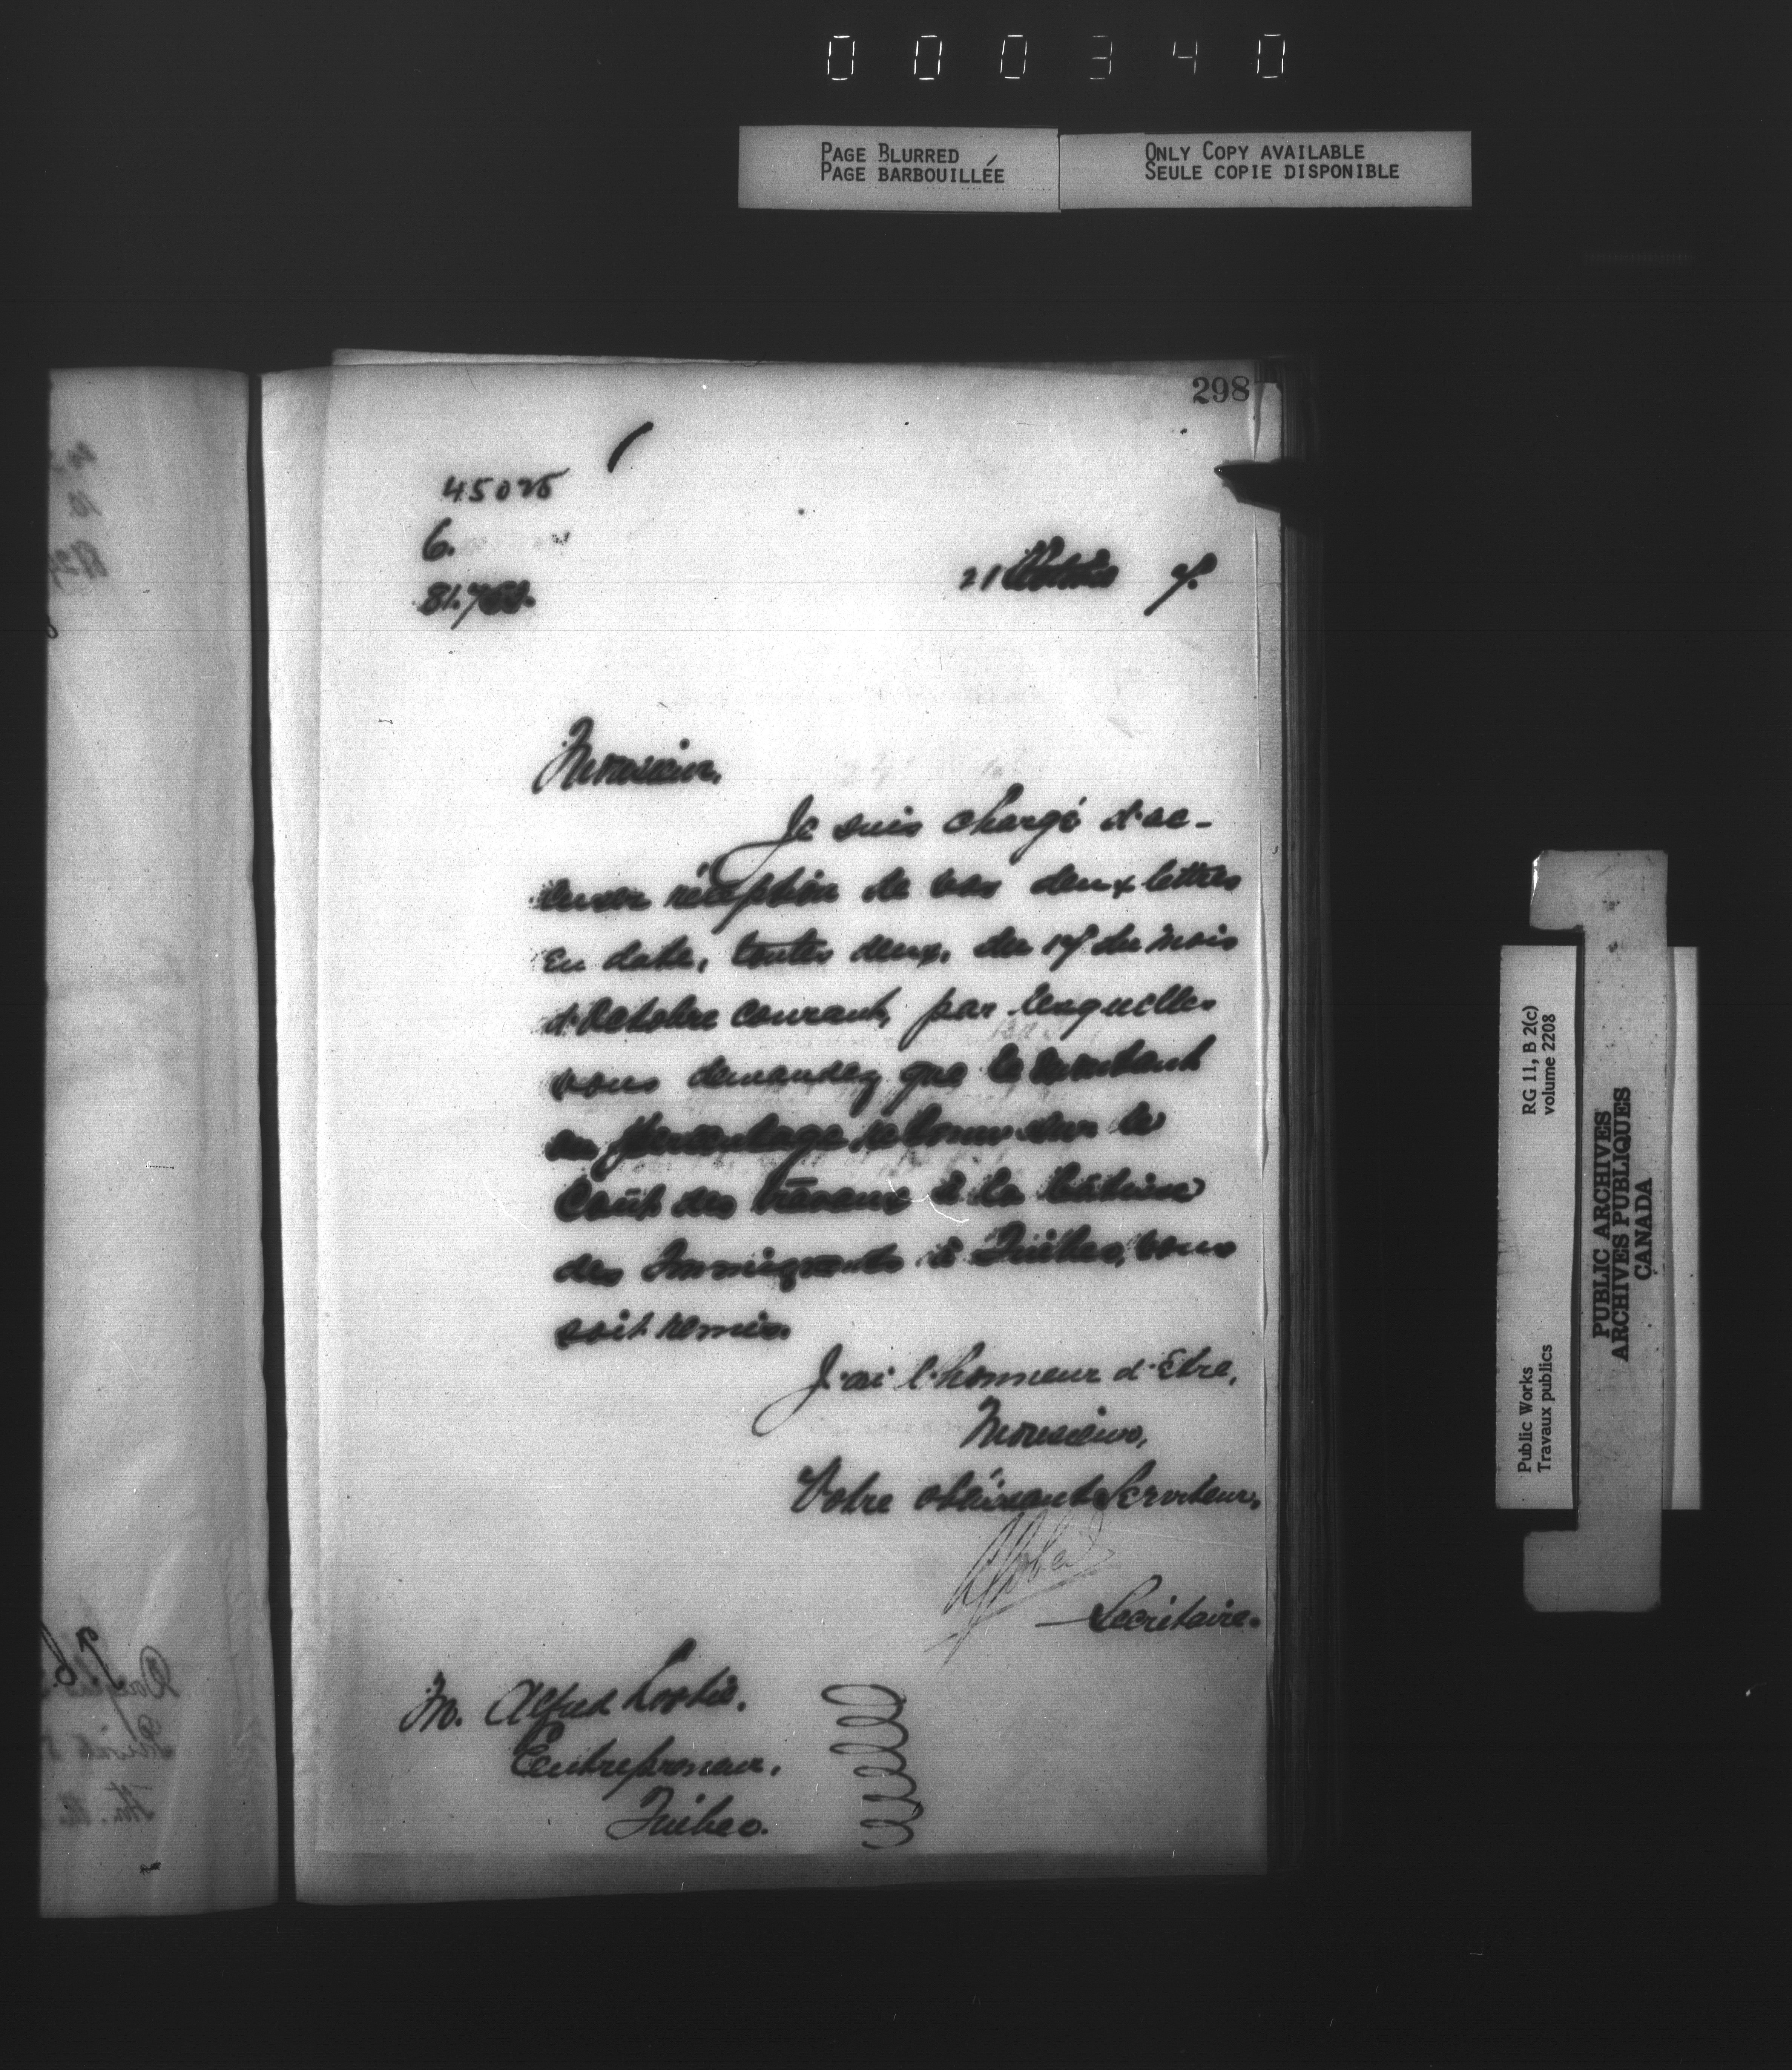 000340
PAGE BLURRED
PAGE BARBOUILLÉE
ONLY COPY AVAILABLE
SEULE COPIE DISPONIBLE
298
45025
6.
21 Octobre 7.
Monsieur,
Je suis chargé d'ac-
cuser réception de vos deux lettres
en date, toutes deux, du 17 du mois
d'Octobre courant, par lesquelles
vous demandez que le montant
du percentage retenu sur le
Coût des travaux à la bâtisse
des Immigrants à Québec, vous
soit remis.
J'ai l'honneur d'Etre,
Monsieur,
Votre obéissant Serviteur,
Secrétaire.
M. Alfred
Entrepreneur,
Québec.
RG 11, B 2(c)
volume 2208
Public Works
Travaux publics
PUBLIC ARCHIVES
ARCHIVES PUBLIQUES
CANADA